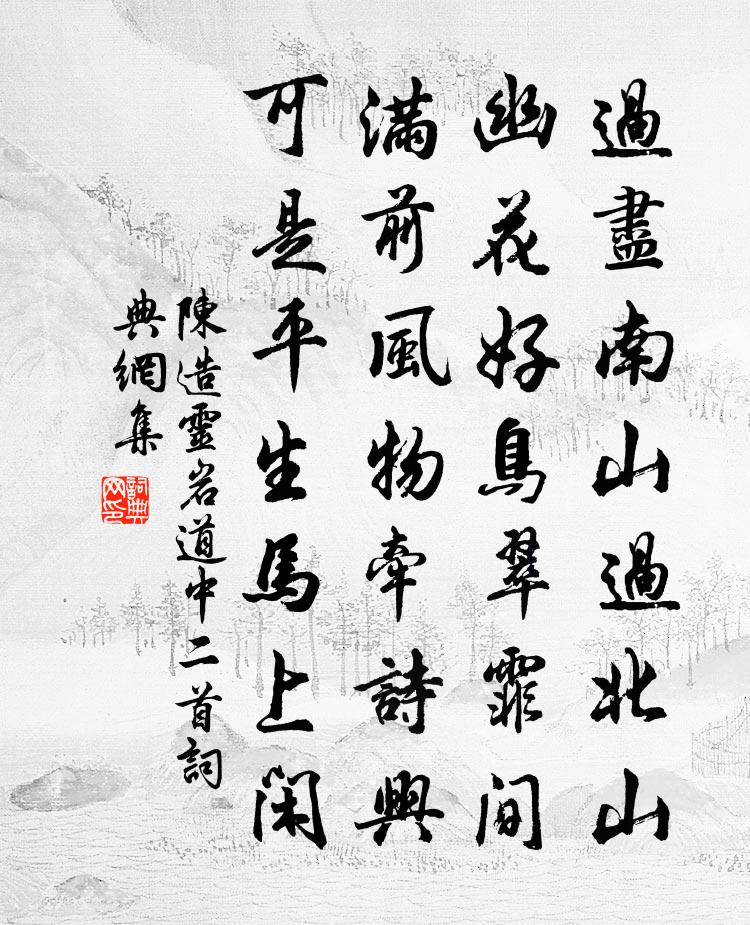 過盡南山過北山
幽花好鳥翠霏間
滿前風物牽詩興
可是平生馬上閑
陳造靈岩道中二首詞
典網集
詞典
网印